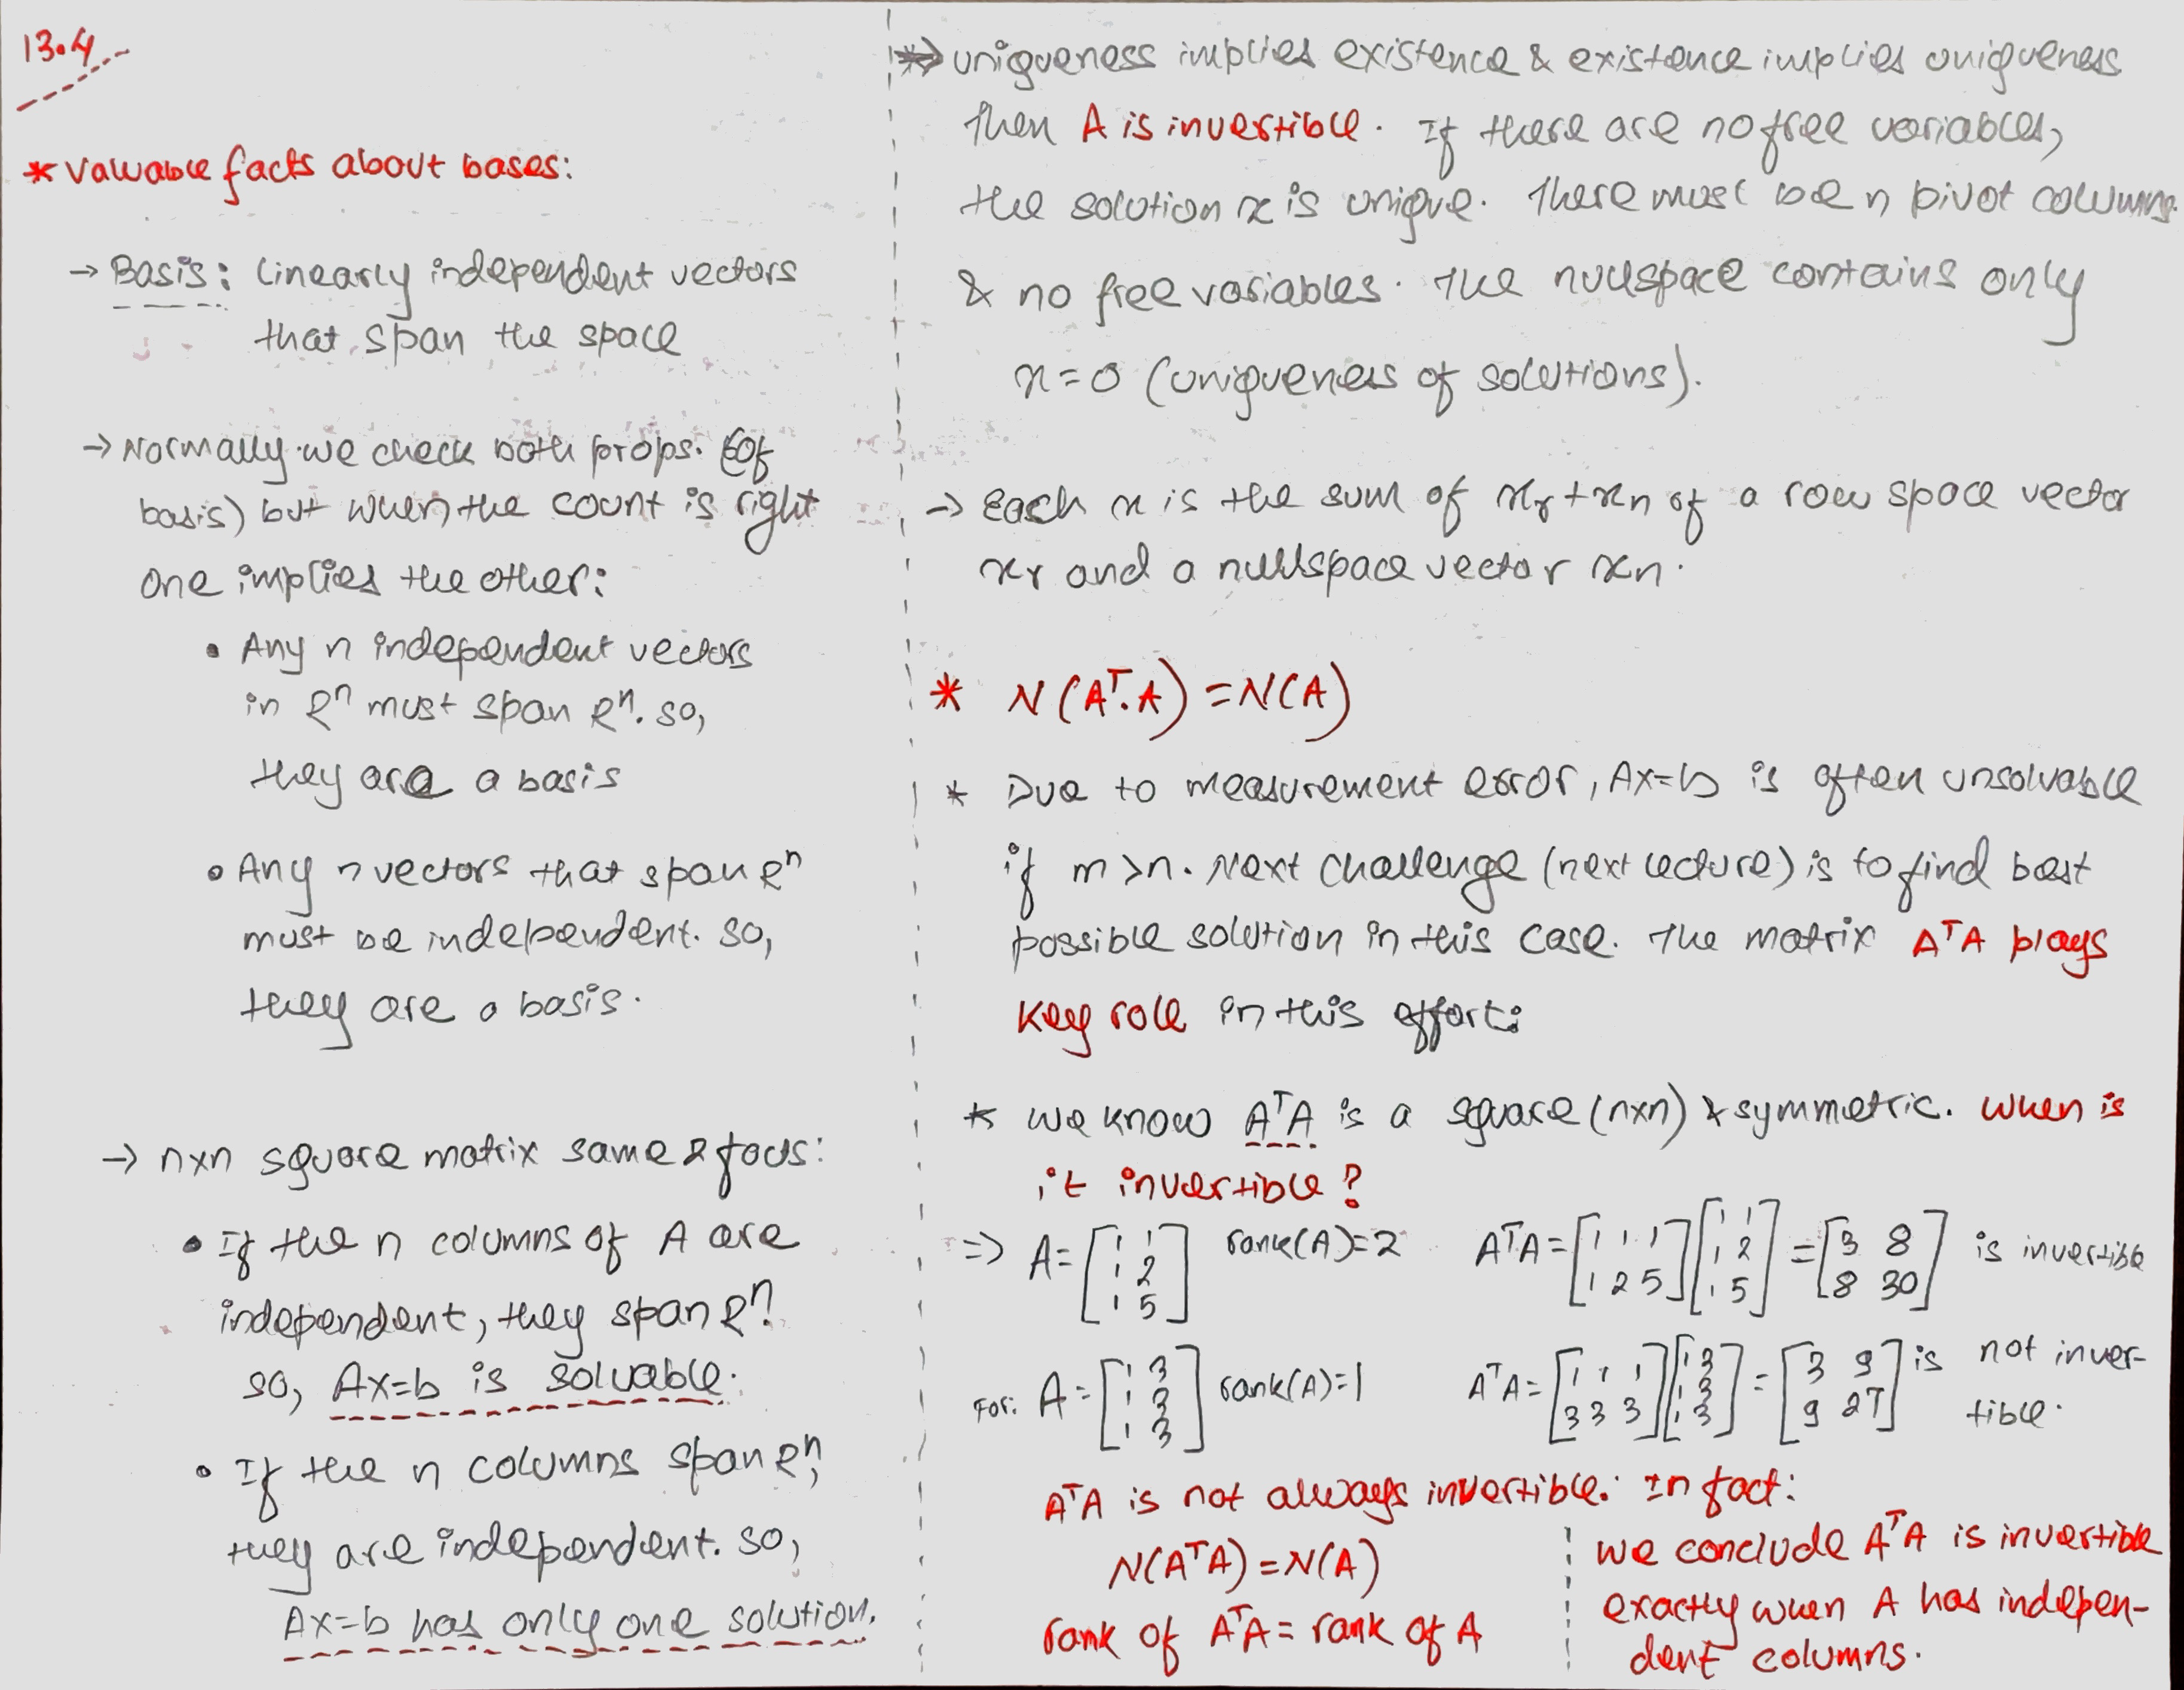 13.4
* Valuable facts about bases:
→ Basis: Linearly independent vectors
that span the space
→ Normally we check both props. (of
basis) but when the count is right
one implies the other:
• Any n independent vectors
in Rⁿ must span Rⁿ. so,
they are a basis
• Any n vectors that span Rⁿ
must be independent. so,
they are a basis.
→ nxn square matrix same 2 facts:
• If the n columns of A are
independent, they span Rⁿ.
so, Ax=b is solvable.
• If the n columns span Rⁿ,
they are independent. so,
Ax=b has only one solution.
⇒ uniqueness implies existence & existence implies uniqueness
then A is invertible. If there are no free variables,
the solution x is unique. There must be n pivot columns.
& no free variables. The nullspace contains only
x=0 (uniqueness of solutions).
→ Each x is the sum of xr+xn of a row space vector
xr and a nullspace vector xn.
* N(Aᵀ.A)=N(A)
* Due to measurement error, Ax=b is often unsolvable
if m>n. Next challenge (next lecture) is to find best
possible solution in this case. The matrix AᵀA plays
key role in this effort:
* we know AᵀA is a square (nxn) & symmetric. When is
it invertible?
⇒ A=[1 1; 1 2; 1 5] rank(A)=2 AᵀA=[1 1 1; 1 2 5][1 1; 1 2; 1 5]=[3 8; 8 30] is invertible
For: A=[1 3; 1 3; 1 3] rank(A)=1 AᵀA=[1 1 1; 3 3 3][1 3; 1 3; 1 3]=[3 9; 9 27] is not inver-
tible.
AᵀA is not always invertible. In fact:
N(AᵀA)=N(A)
rank of AᵀA=rank of A
we conclude AᵀA is invertible
exactly when A has indepen-
dent columns.